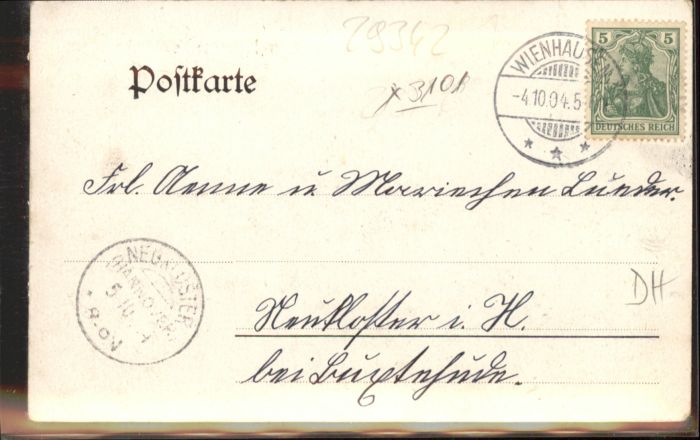 29342
Postkarte
x 3101
WIENHAUSEN
-4.10.04.5-
5 5
DEUTSCHES REICH
Frl. Aenne u. Mariechen Lueder.
NEUKLOSTER
(HANNOVER)
5 10 4
8-9V
DH
Neukloster i. H.
bei Buxtehude.